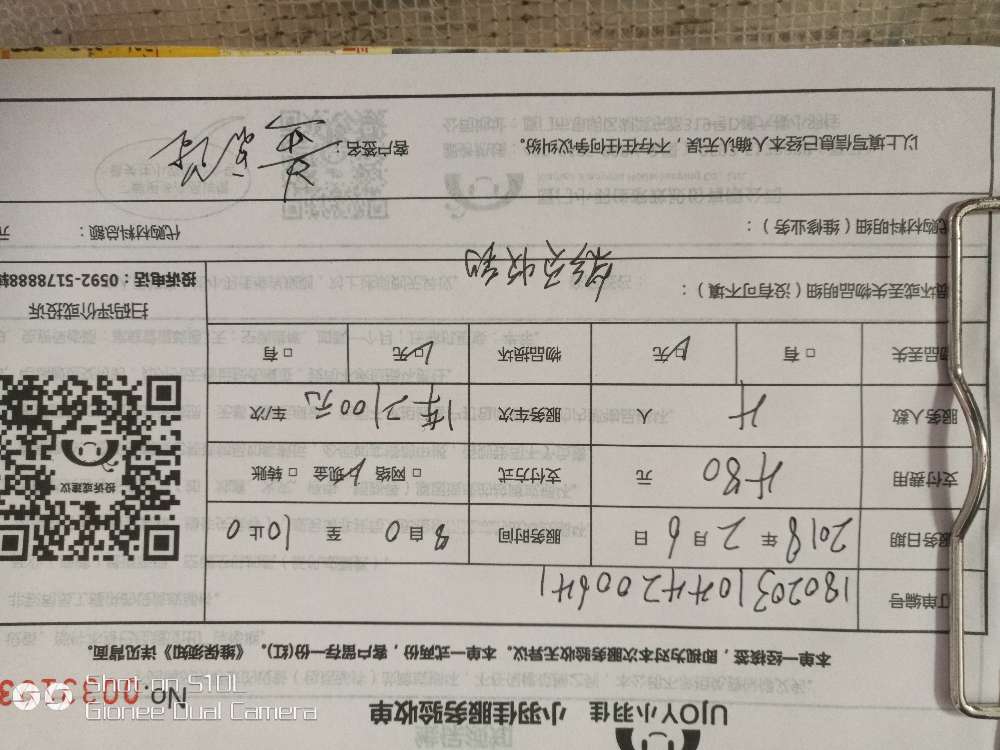 UJOY小羽佳 小羽佳服务验收单
No.
本单一经接签，即视为对本次服务验收无异议。本单一式两份，客户留存一份(红)。《维保须知》详见背面。
订单编号 1802031044200641
服务日期 2018 年 2 月 6 日 服务时间 8 自 0 至 10 止 0
支付费用 480 元 支付方式 □ 网络 ☑ 现金 □ 转账
服务人数 4 人 服务车次 1车 2100元 车次
物品丢失 □ 有 ☑ 无 物品损坏 □ 有 ☑ 无
投诉或建议
扫码评价或投诉
投诉电话：0592-5178888转
损坏或丢失物品明细（没有可不填）：
代购材料明细（维修业务）： 代购材料总额： 元
以上填写信息已经本人确认无误，不存在任何争议纠纷。 客户签名：
Shot on S10L
Gionee Dual Camera